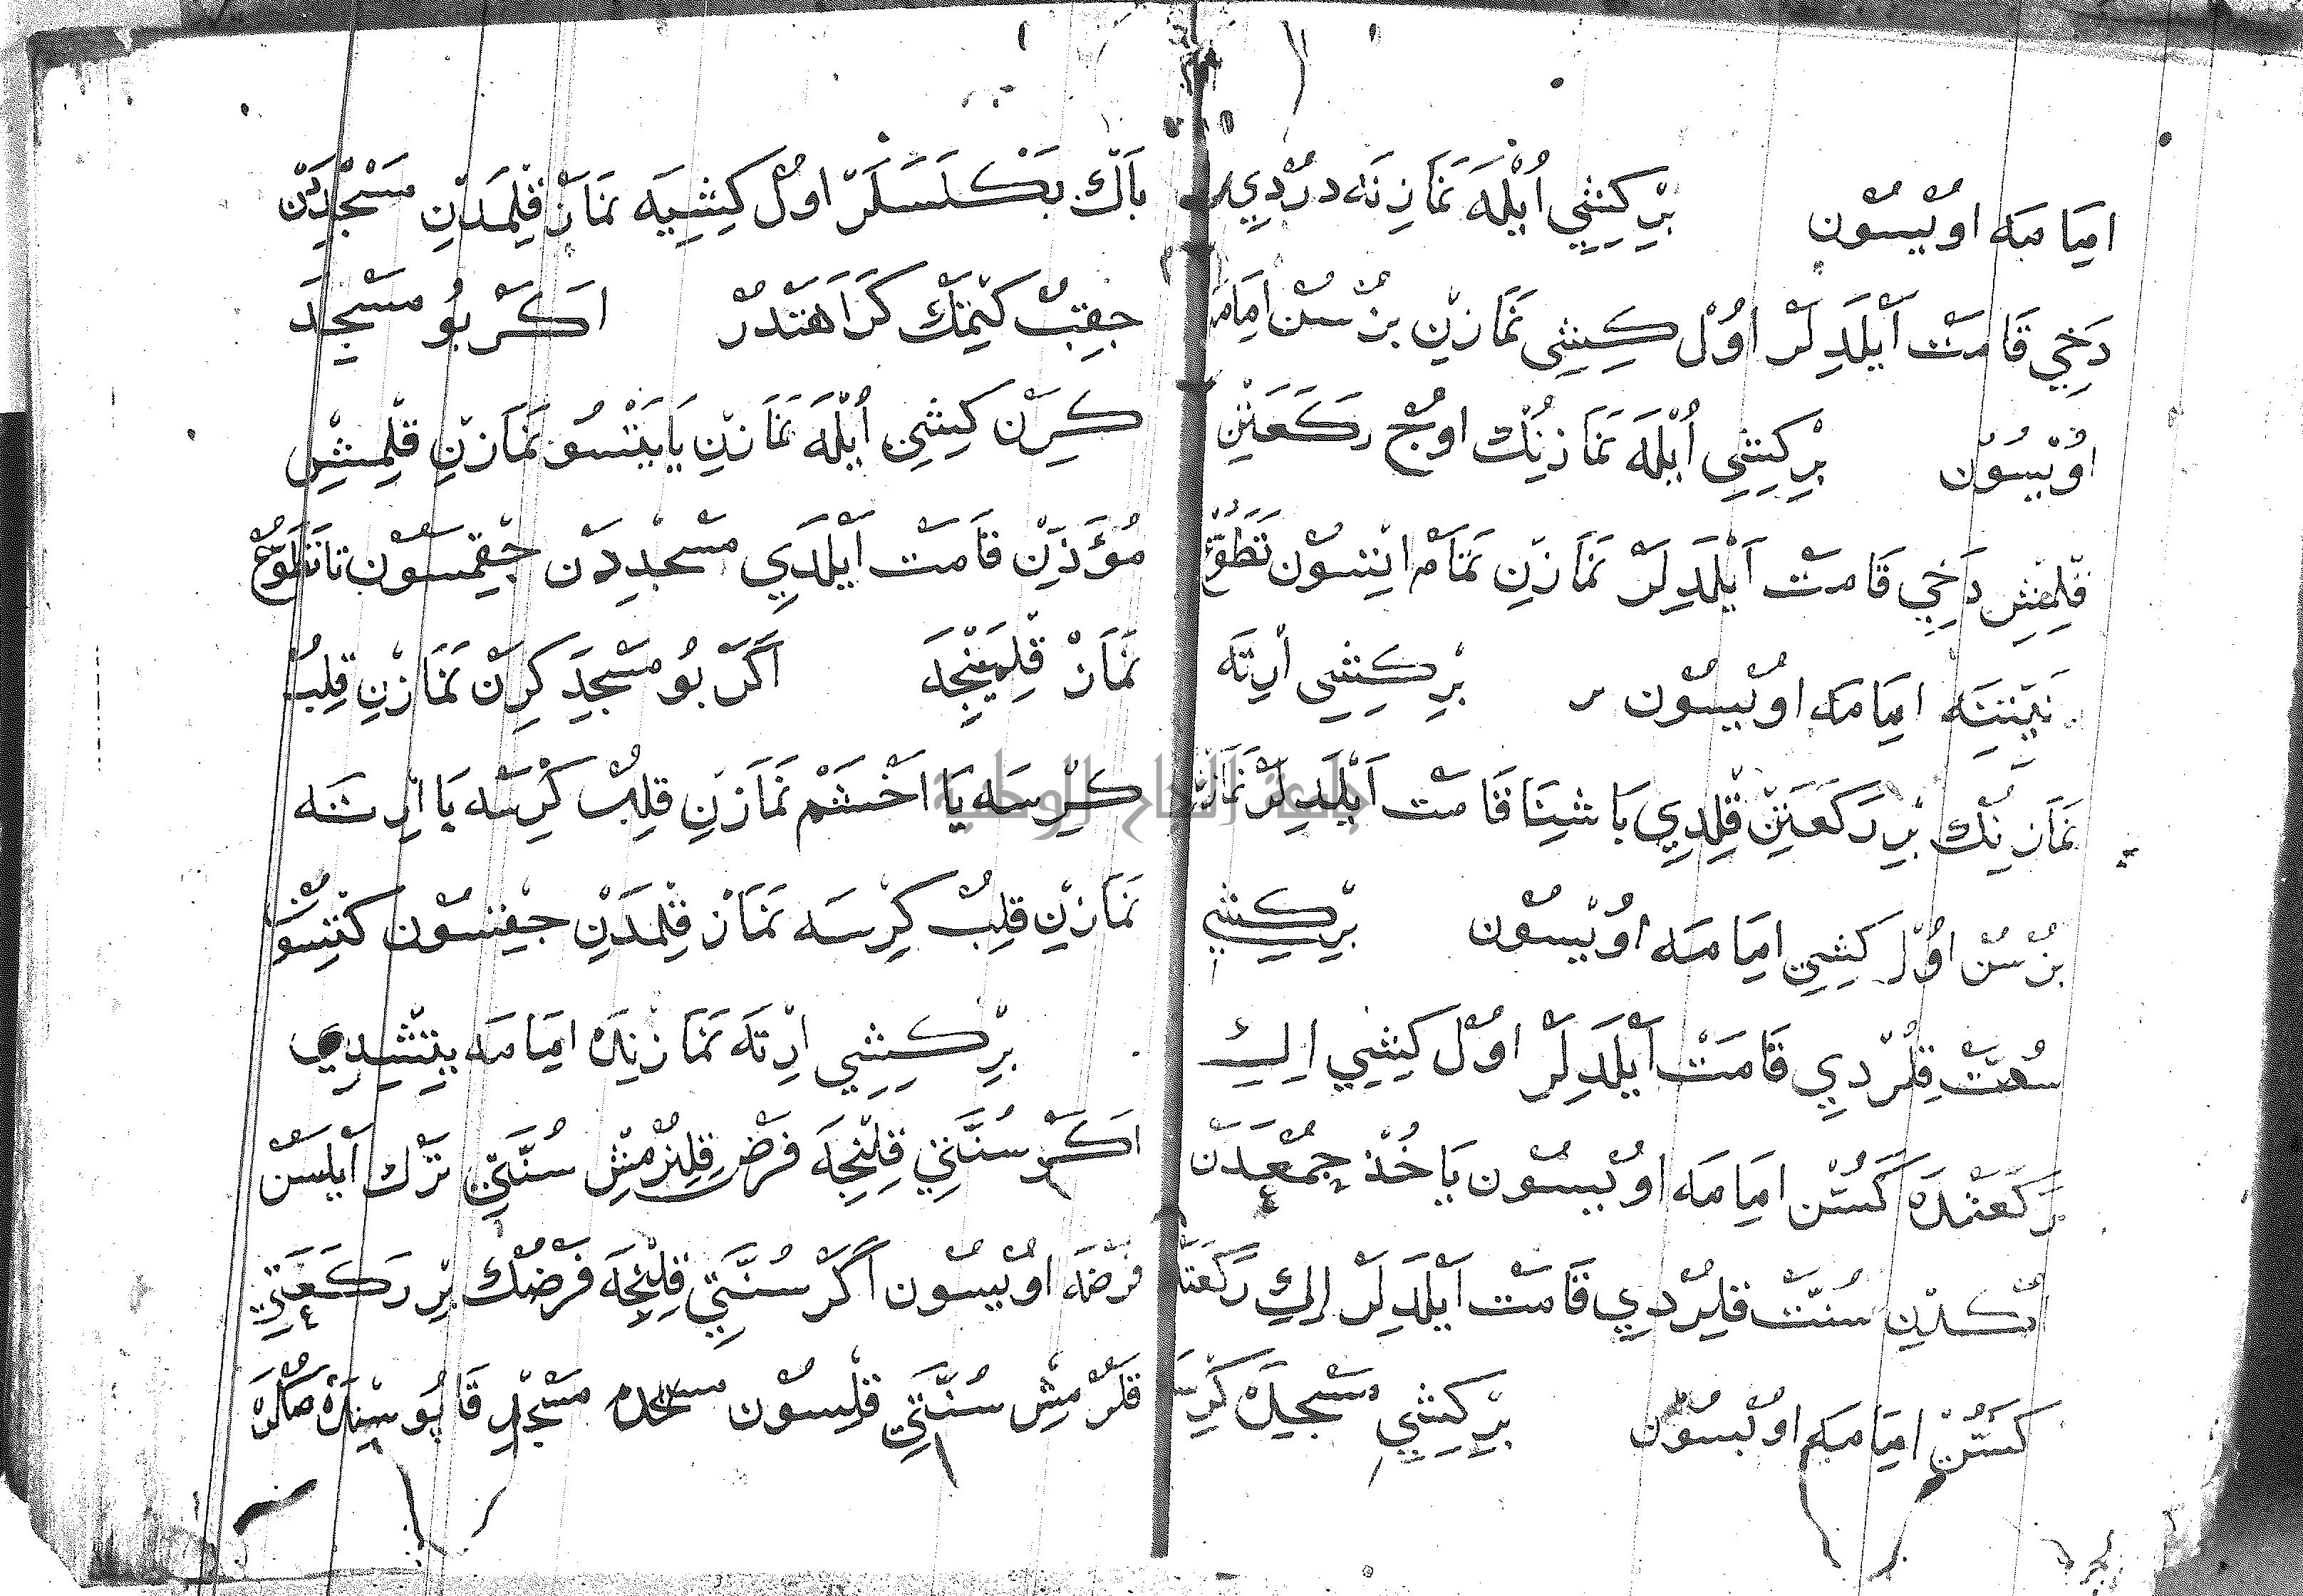 اِمَامَه اوُيْسوُن بِرْكِشِي اُيْلَه نَمَازِنَه دُرْدِي
دَخِي قَامَتْ اَيْلَدِلَرْ اوُلْ كِشِي نَمَازِنِ بُزْسُنْ اِمَامَه
اوُيْسوُن بِرْكِشِي اُيْلَه نَمَازِنُكْ اوُجْ رَكَعَتِنْ
قِلْمِشْ دَخِي قَامَتْ اَيْلَدِلَرْ نَمَازِنِ تَمَامْ اِتْسوُن تَطَوُّعْ
نِيَّتِنَه اِمَامَه اوُيْسوُن بِرْكِشِي اِرْتَه
نَمَازِنُكْ بِرْ رَكَعَتِنْ قِلْدِي قَامَتْ اَيْلَدِلَرْ نَمَازِنْ
بُزْسُنْ اوُلْ كِشِي اِمَامَه اوُيْسوُن بِرْكِشِي
سُنَّتْ قِلُرْدِي قَامَتْ اَيْلَدِلَرْ اوُلْ كِشِي اِكِ
رَكَعَتْدَه كَسُنْ اِمَامَه اوُيْسوُن يَاخُذْ جُمْعَدَنْ
سُنَّتْ قِلُرْدِي قَامَتْ اَيْلَدِلَرْ اِكِ رَكَعَتْدَه
كَسُنْ اِمَامَه اوُيْسوُن بِرْكِشِي مَسْجِدَه كِرْسَه
بَاكْ بَكْلَسَلَرْ اوُلْ كِشِيَه نَمَازْ قِلْمَدِنْ مَسْجِدَنْ
جِقِبْ كِتْمَكْ كَرَاهَتْدُرْ اَكَرْ بُو مَسْجِدَ
كِرَنْ كِشِي اُيْلَه نَمَازِنِ يَا يَتْسُو نَمَازِنِ قِلْمِشْ
مُؤَذِّنْ قَامَتْ اَيْلَدِي مَسْجِدِدَنْ جِقْمَسوُن تَا تَطَوُّعْ
نَمَازْ قِلْمَيِنْجَه اَكَرْ بُو مَسْجِدَ كِرَنْ نَمَازِنِ قِلِبْ
كِرْسَه يَا اَخْشَمْ نَمَازِنِ قِلِبْ كِرْسَه يَا اِرْتَه
نَمَازِنِ قِلِبْ كِرْسَه نَمَازْ قِلْمَدِنْ جِقْسوُن كِتْسوُ
بِرْكِشِي اِرْتَه نَمَازِنْدَه اِمَامَه يِتِشْدِي
اَكَرْ سُنَّتِي قِلِنْجَه فَرْضِ قِلِنُرْمِشْ سُنَّتِي تَرْكْ اَيْلَسُنْ
فَرْضَه اوُيْسوُن اَكَرْ سُنَّتِي قِلِنْجَه فَرْضُكْ بِرْ رَكَعَتِي
قَلُرْمِشْ سُنَّتِي قِلْسوُن مَسْجِدْ قَاپُوسِنْدَه